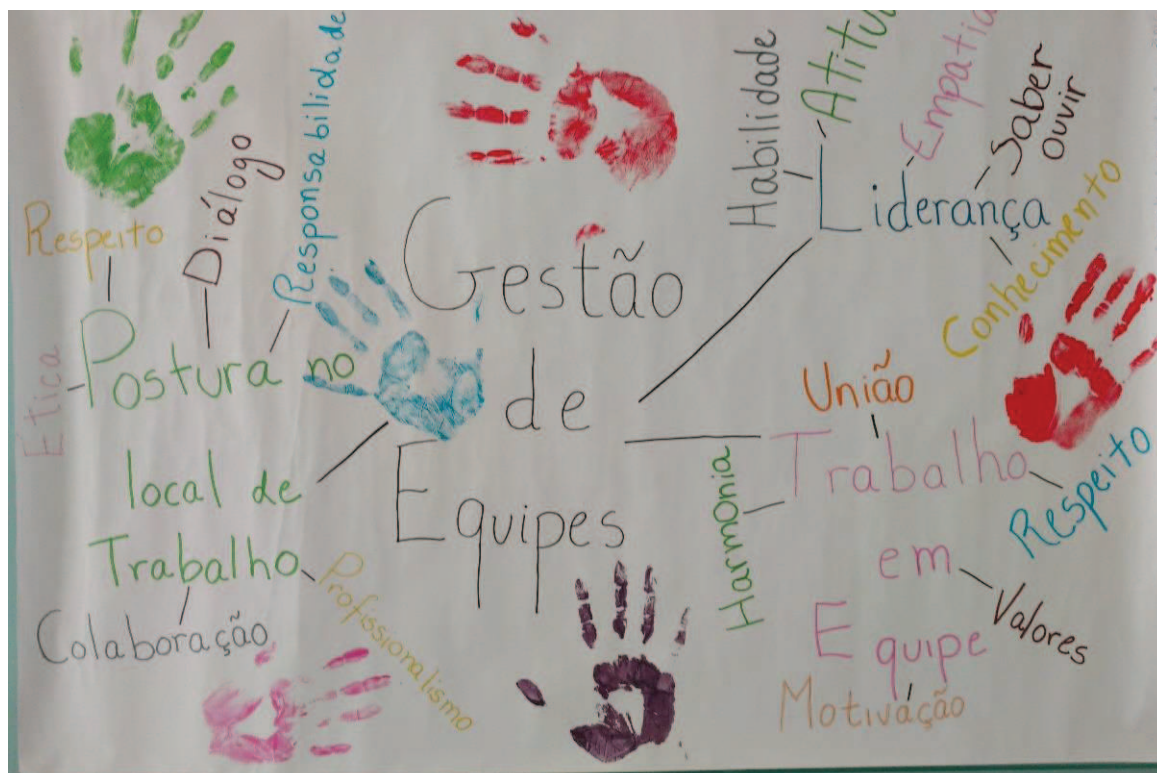 Gestão
de
Equipes
Postura no
local de
Trabalho
Respeito
Diálogo
Responsabilidade
Ética
Colaboração
Profissionalismo
Liderança
Habilidade
Saber
ouvir
Conhecimento
Trabalho
em
Equipe
União
Harmonia
Respeito
Valores
Motivação